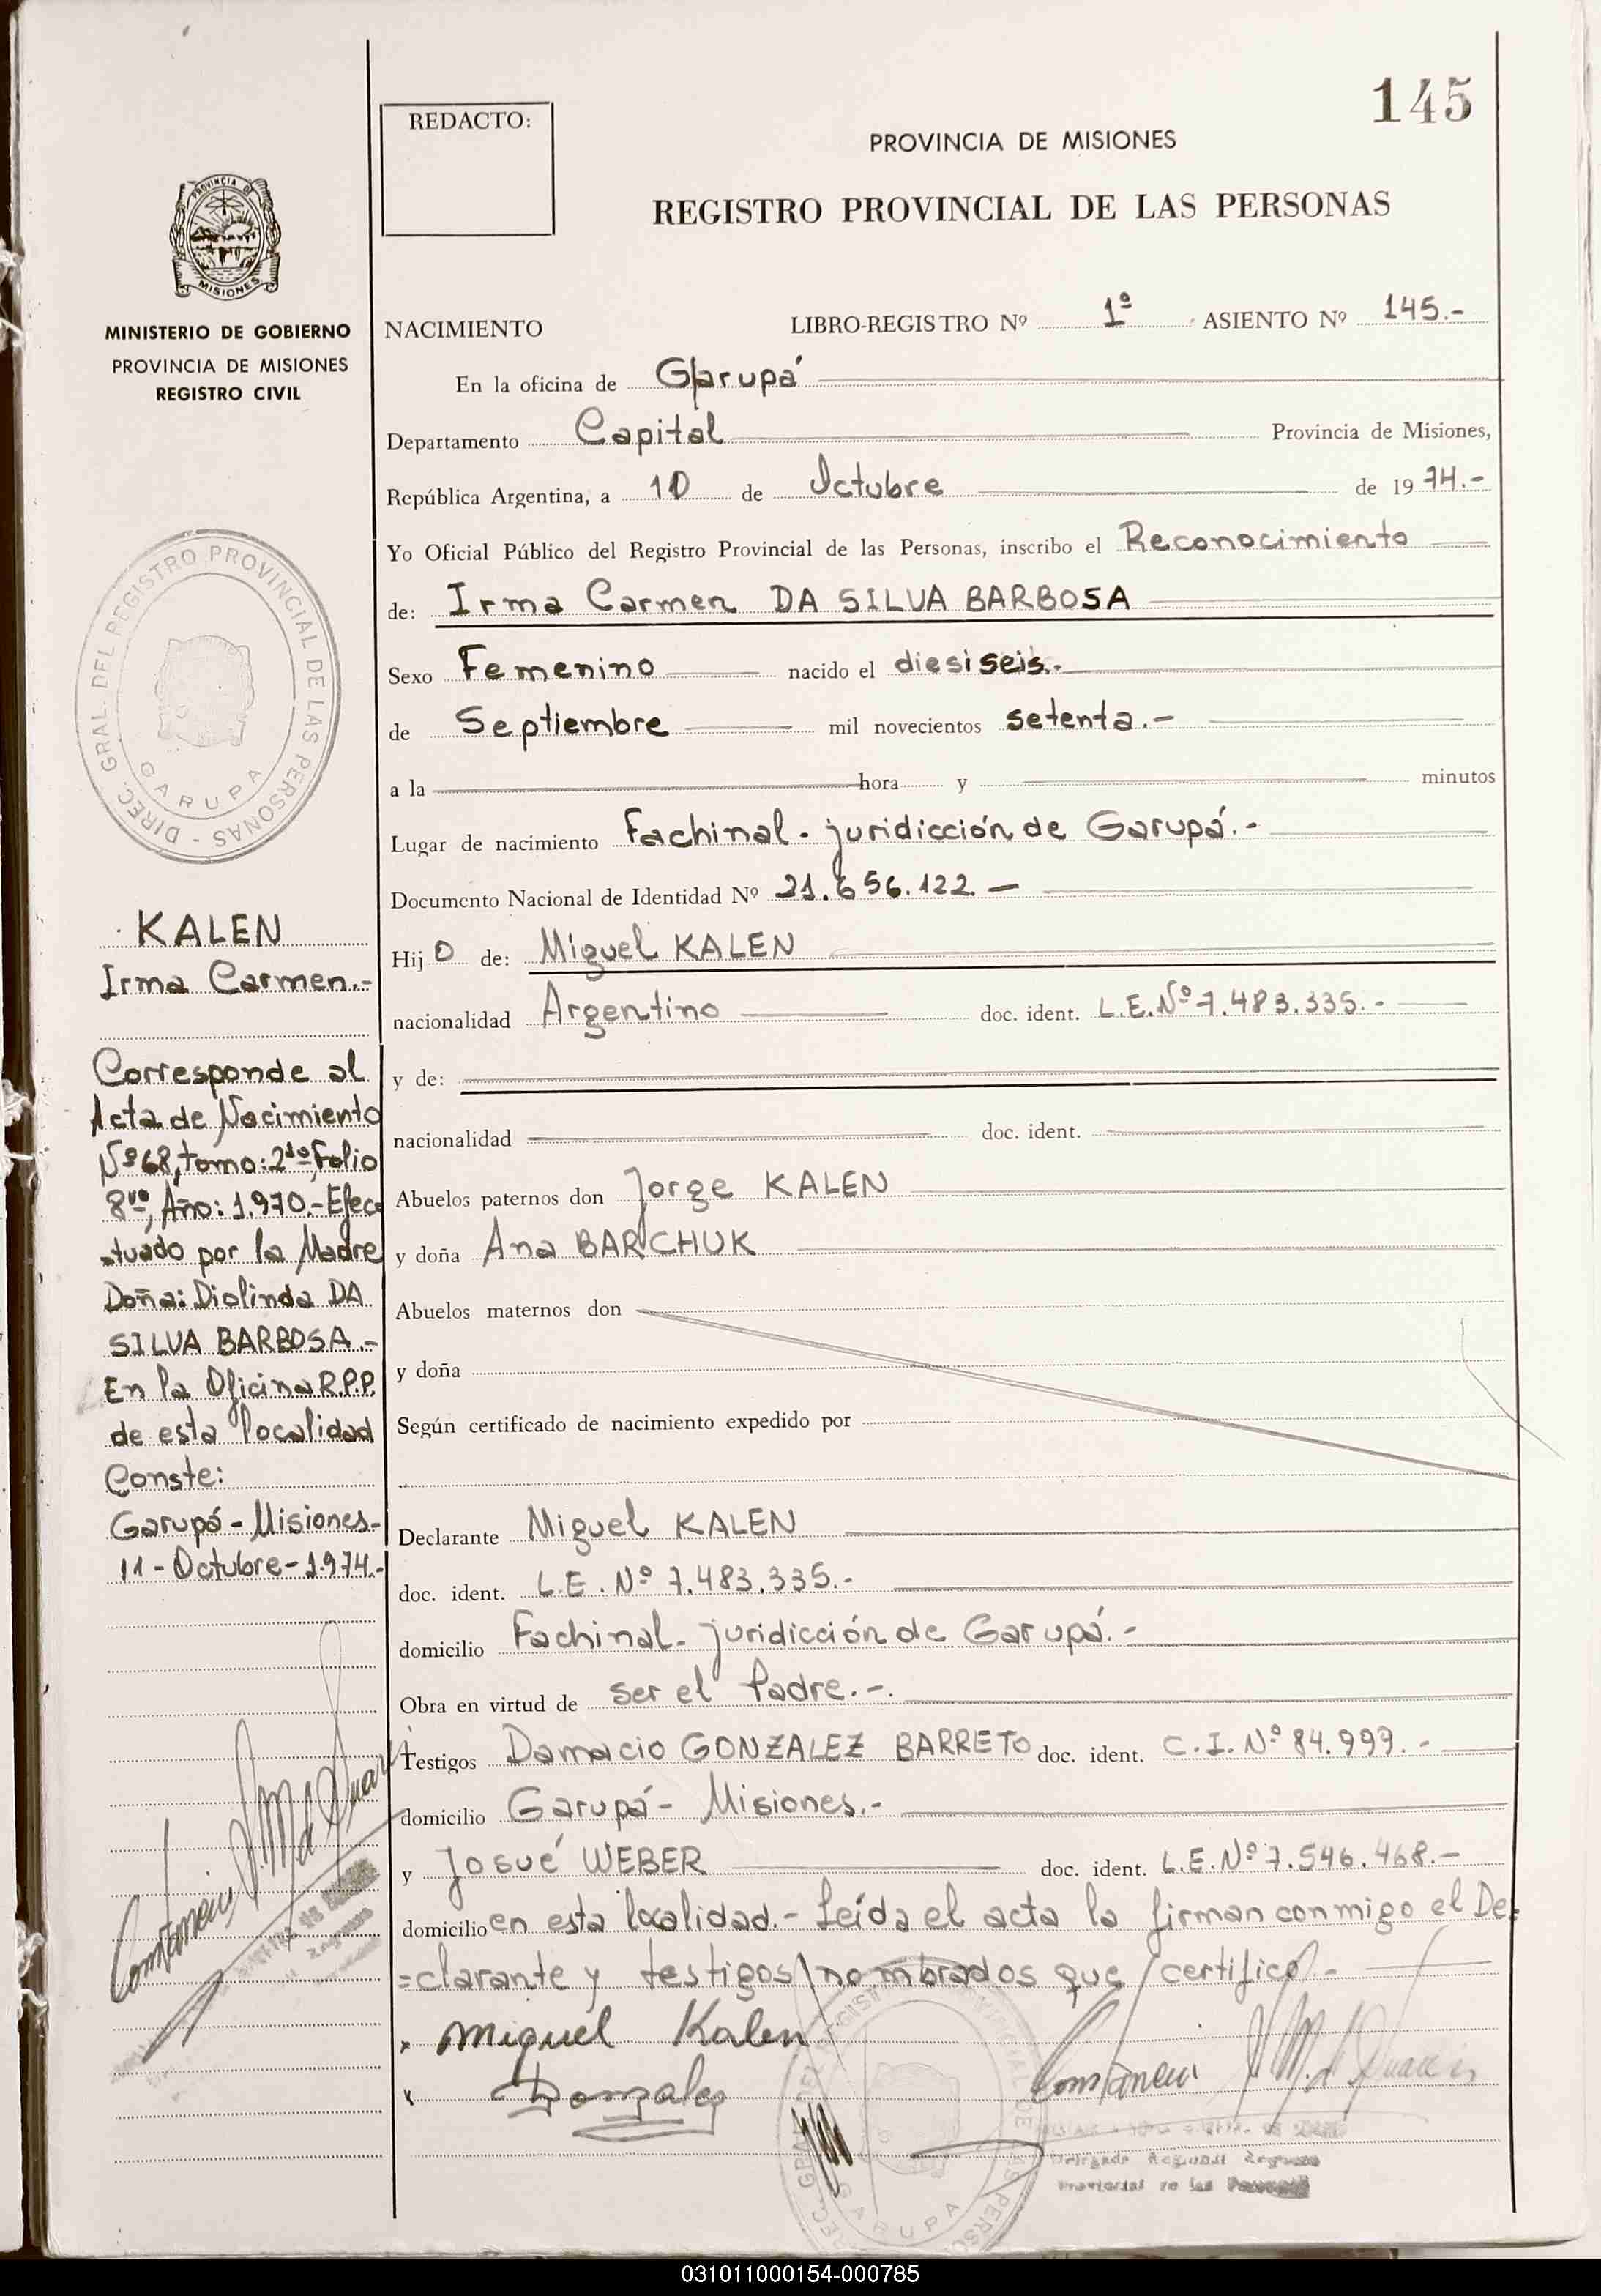 145
REDACTO:
PROVINCIA DE MISIONES
REGISTRO PROVINCIAL DE LAS PERSONAS
PROVINCIA DE
MISIONES
MINISTERIO DE GOBIERNO
PROVINCIA DE MISIONES
REGISTRO CIVIL
NACIMIENTO LIBRO-REGISTRO Nº 1º ASIENTO Nº 145.-
En la oficina de Garupá
Departamento Capital Provincia de Misiones,
República Argentina, a 10 de Octubre de 1974.-
Yo Oficial Público del Registro Provincial de las Personas, inscribo el Reconocimiento
de: Irma Carmen DA SILVA BARBOSA
Sexo Femenino nacido el diesiseis.-
de Septiembre mil novecientos setenta.-
a la hora y minutos
Lugar de nacimiento Fachinal - juridicción de Garupá.-
Documento Nacional de Identidad Nº 21.656.122.-
Hijo de: Miguel KALEN
nacionalidad Argentino doc. ident. L.E.Nº 7.483.335.-
y de:
nacionalidad doc. ident.
Abuelos paternos don Jorge KALEN
y doña Ana BARCHUK
Abuelos maternos don
y doña
Según certificado de nacimiento expedido por
Declarante Miguel KALEN
doc. ident. L.E. Nº 7.483.335.-
domicilio Fachinal - juridicción de Garupá.-
Obra en virtud de ser el Padre.-.
Testigos Damacio GONZALEZ BARRETO doc. ident. C.I. Nº 84.999.-
domicilio Garupá - Misiones.-
y Josué WEBER doc. ident. L.E. Nº 7.546.468.-
domicilio en esta localidad.- Leída el acta la firman conmigo el De=
=clarante y testigos nombrados que certifico.-
Miguel Kalen
Gonzalez
Delegado Regional Registro
Provincial de las Personas
DIREC. GRAL. DEL REGISTRO PROVINCIAL DE LAS PERSONAS -
GARUPA
KALEN
Irma Carmen.-
Corresponde al
Acta de Nacimiento
Nº 68, tomo: 2do, Folio
8vo, Año: 1.970.- Efec
tuado por la Madre
Doña: Diolinda DA
SILVA BARBOSA.-
En la Oficina R.P.P.
de esta localidad
Conste:
Garupá - Misiones-
11 - Octubre - 1.974.-
031011000154-000785